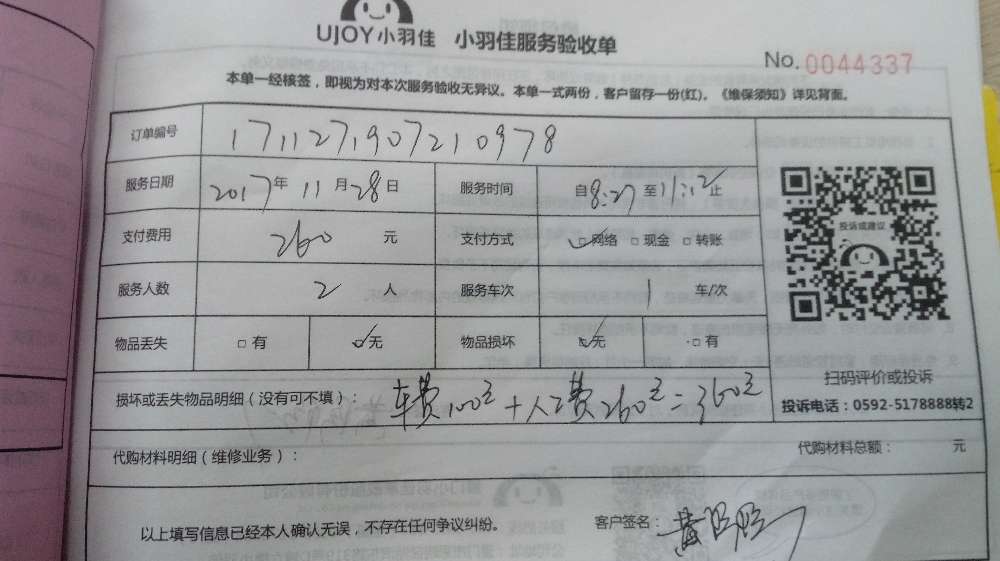 UJOY小羽佳 小羽佳服务验收单
No. 0044337
本单一经核签，即视为对本次服务验收无异议。本单一式两份，客户留存一份(红)。《维保须知》详见背面。
订单编号 1711271907210978
服务日期 2017年 11月 28日 服务时间 自8:27至11:12止
支付费用 260 元 支付方式 ☑网络 □现金 □转账
投诉或建议
服务人数 2 人 服务车次 1 车/次
物品丢失 □有 ☑无 物品损坏 ☑无 □有
扫码评价或投诉
损坏或丢失物品明细（没有可不填）： 车费100元+人工费260元=360元
投诉电话：0592-5178888转2
代购材料明细（维修业务）： 代购材料总额： 元
以上填写信息已经本人确认无误，不存在任何争议纠纷。 客户签名： 黄